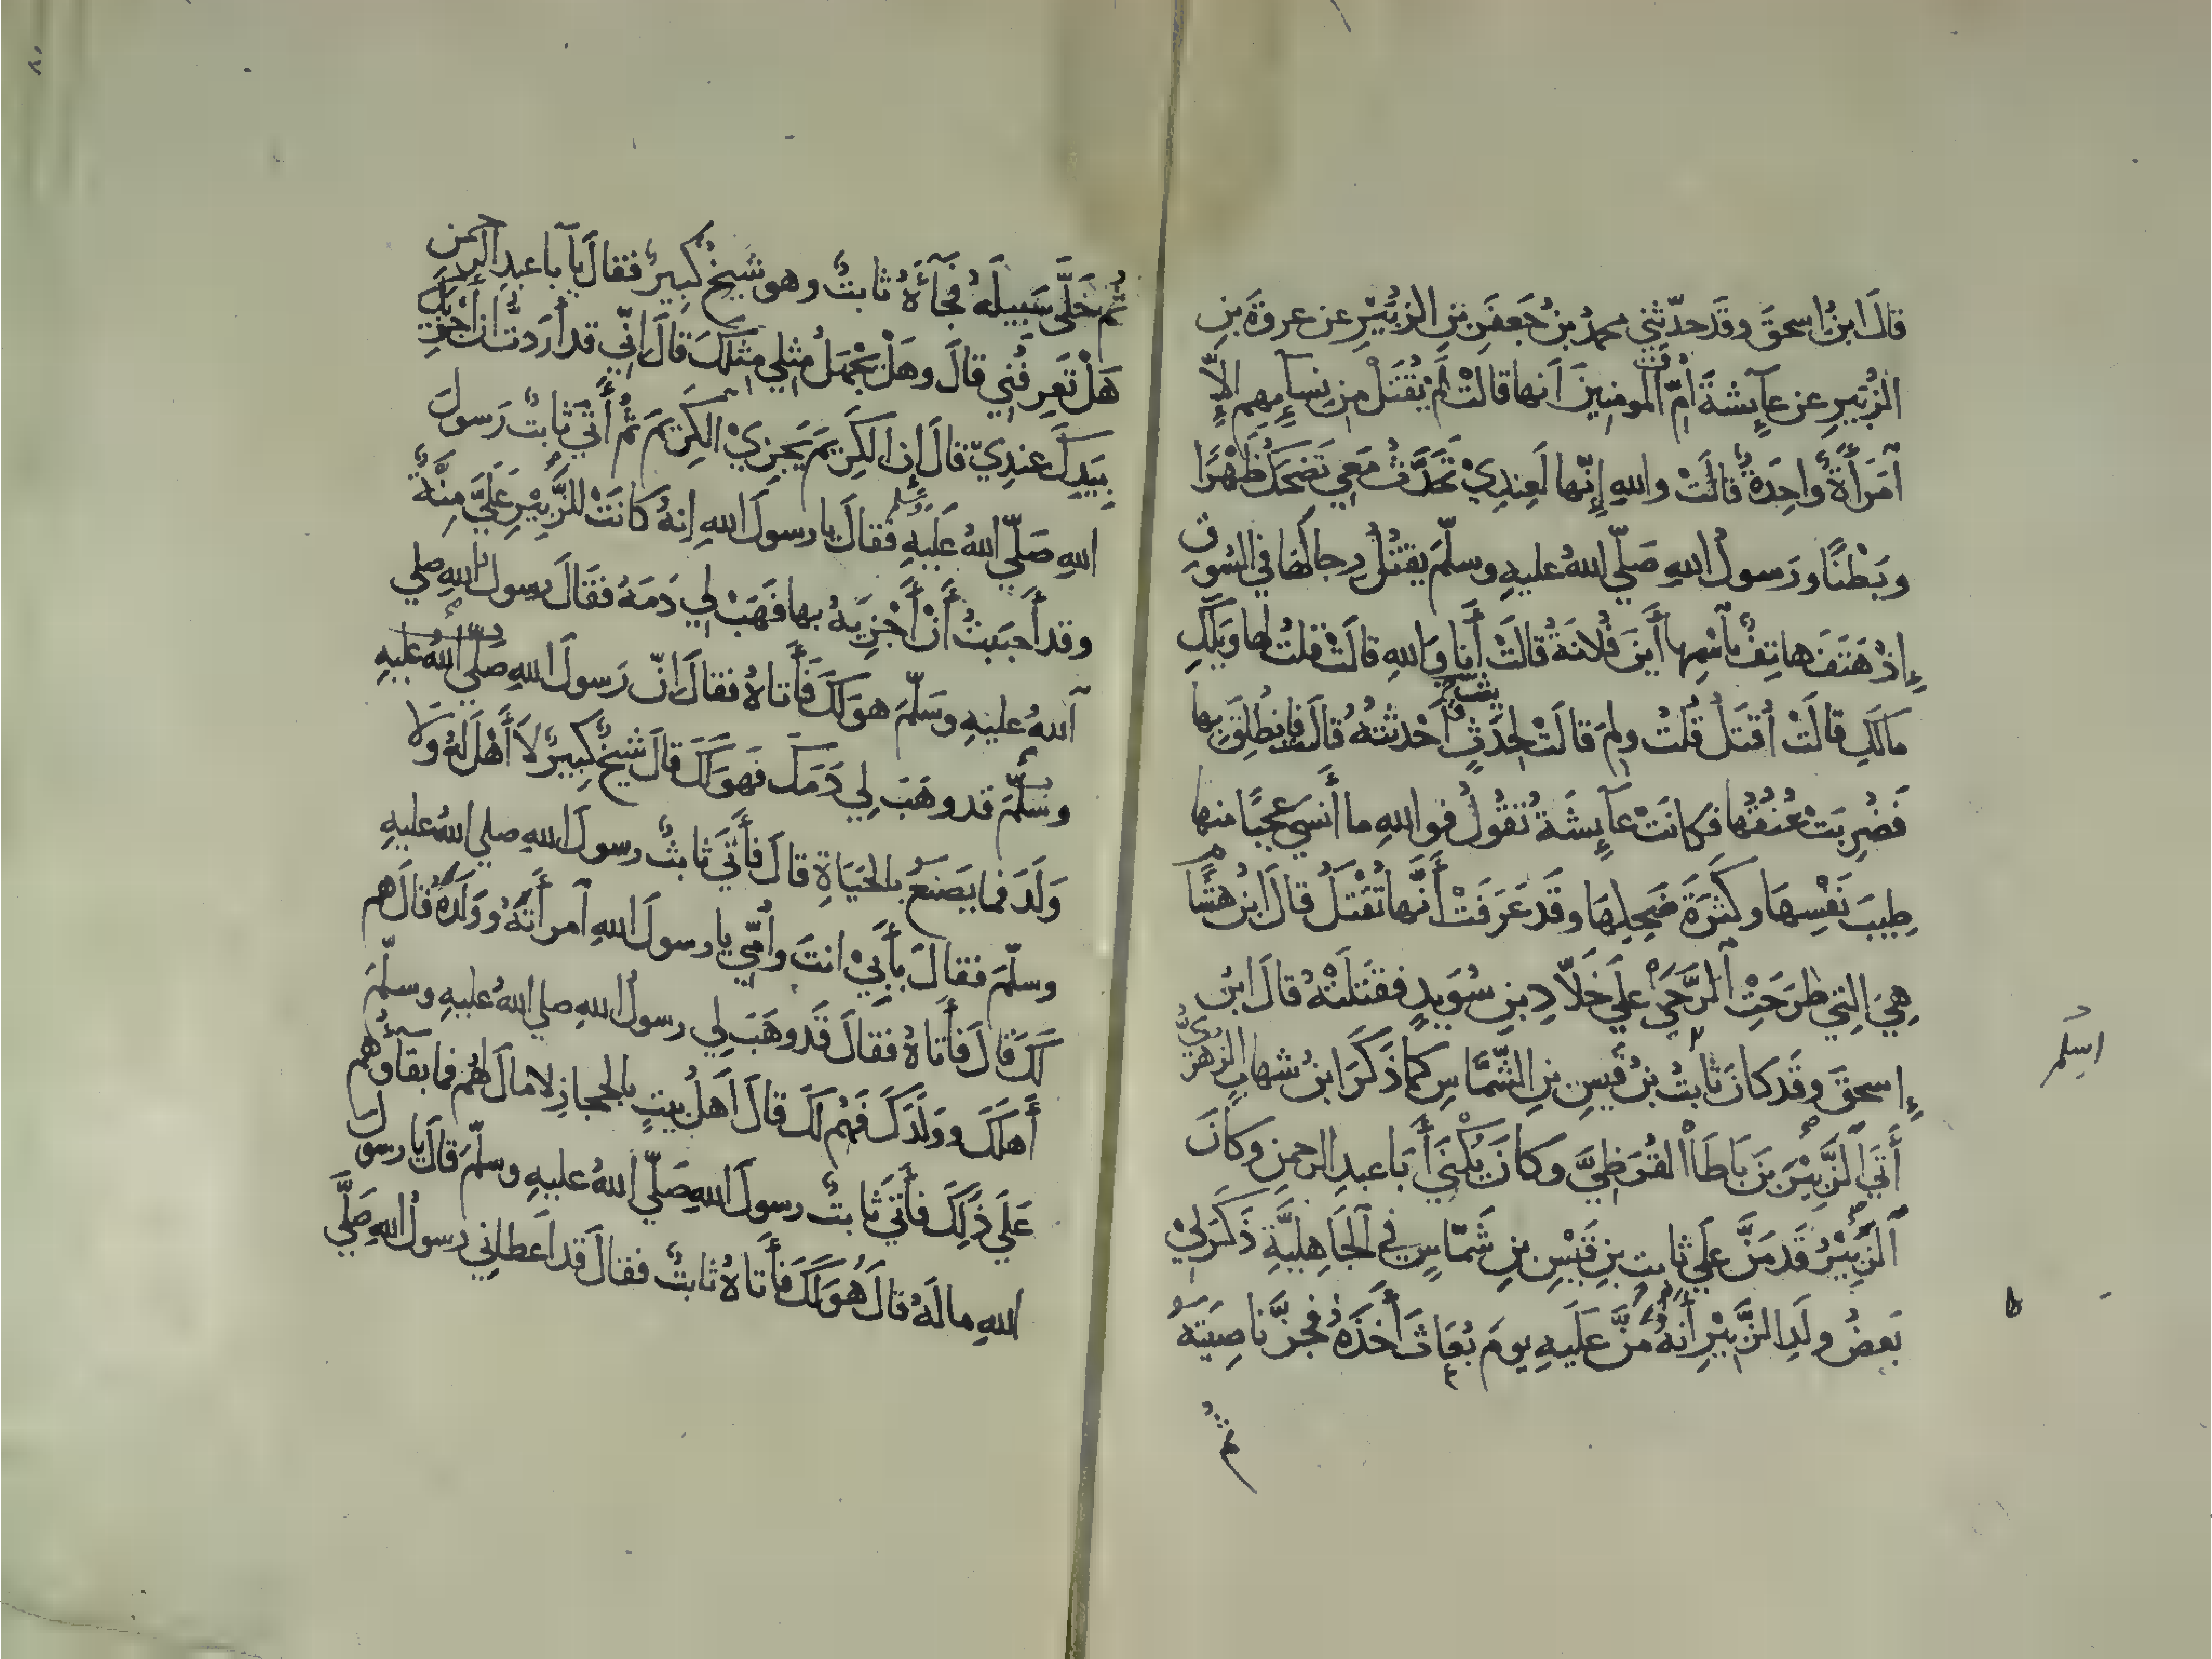 قالَ ابنُ اسحقَ وقَد حدّثني محمدُ بنُ جَعفَرِ بنِ الزبُيَْرِ عن عروةَ بنِ
الزُبَيرِ عن عآيِشةَ أمِّ المومنِينَ أنها قالتْ لَم يُقتَلْ مِن نِسآيِهِم الاّ
آمَرَأَةٌ واحِدَةٌ قالَتْ واللهِ إنّها لَعِندِيْ تَحَدَّثُ مَعِي تَضحَكُ ظَهْرًا
وبَطْنًا ورَسولُ اللهِ صَلّي اللهُ عليهِ وسلّمَ يقتُلُ رِجالَها في السُوقِ
إذْ هَتَفَ هاتِفٌ بآسْمِها أَينَ فُلانَةُ قالَتْ أَنا وَاللهِ قالَتْ قلتُ لها وَيلَكِ
مالَكِ قالَتْ أُقتَلُ قُلتُ ولِمَ قالَتْ لِحَدَثٍ أَحْدثتُهُ قالَت فانطُلِقَ بِها
فَضُرِبَتْ عُنُقُها فكانَتْ عآيِشَةُ تَقُولُ فواللهِ ما أَنسَي عَجَبًا منها
طِيبَ نَفْسِهَا وكَثرَةَ ضَحِكِهَا وقَد عَرَفَتْ أَنَّها تُقْتَلُ قالَ ابنُ هشَام
هِيَ التِي طَرَحَتِ الرَّحَيَ علَي خَلاّدِ بنِ سُوَيدٍ فقَتَلَتْهُ قالَ ابنُ
إسحقَ وقَد كانَ ثابتُ بنُ قَيسِ بنِ الشَّمّاسِ كمَا ذَكَرَ ابنُ شهابٍ الزهريُّ
أَتَي الزَّبِيْرَ بنَ بَاطَا القُرَظِيَّ وكانَ يُكْنَي أَبَا عبدِ الرحمنِ وكانَ
الزَّبِيْرُ قَد مَنَّ علَي ثابتِ بنِ قَيْسِ بنِ شَمّاسٍ في الجَاهِليَّةِ ذَكَرَ لِيْ
بَعضُ ولَدِ الزَّبِيْرِ أَنهُ مَنَّ عَلَيهِ يومَ بُعَاثَ أَخَذَهُ فجَزَّ ناصِيَتَهُ
ثم
ثُم خَلَّى سَبيلَهُ فجَآءَهُ ثابتٌ وهو شَيخٌ كبِيرٌ فقالَ يآ با عبدِ الرحمن
هَلْ تَعرِفُنِي قالَ وهَلْ يَجْهَلُ مِثلِي مِثلَكَ قالَ إنّي قد أَردتُّ أن أجزِيَكَ
بِيَدِكَ عندِيْ قالَ إن الكَرِيمَ يَجزِيْ الكرِيمَ ثُم أَتَي ثابتٌ رَسولَ
اللهِ صَلّي اللهُ عَلَيهِ وسلم فقالَ يا رسولَ اللهِ إنهُ كانَتْ للزَّبِيْرِ عَلَيَّ مِنَّةٌ
وقد أَحبَبتُ أَنْ أَجْزِيَهُ بها فَهَبْ لِي دَمَهُ فقَالَ رسولُ اللهِ صلي
اللهُ عليهِ وسَلّمَ هوَ لكَ فَأَتاهُ فقالَ إنّ رَسولَ اللهِ صَلّي اللهُ عليهِ
وسلّمَ قد وهَبَ لِي دَمَكَ فهوَ لَكَ قالَ شيخٌ كبِيرٌ لاَ أَهْلَ لهُ وَلا
وَلَدَ فما يَصنَعُ بالحَيَاةِ قالَ فأَتَي ثابتٌ رسولَ اللهِ صلي اللهُ عليهِ
وسلّمَ فقالَ بِأَبِيْ انتَ وأُمّي يا رسولَ اللهِ آمرأَتَهُ ووَلَدَهُ قالَ هم
لَكَ قالَ فأَتاهُ فقالَ قَد وهَبَ لِي رسولُ اللهِ صلي اللهُ عليهِ وسلّمَ
أَهلَكَ ووَلَدَكَ فَهُم لَكَ قالَ أَهلُ بيتٍ بالحجازِ لا مالَ لهُم فما بقآؤُهم
عَلَي ذَلِكَ فأَتَي ثابتٌ رسولَ اللهِ صَلّي اللهُ عليهِ وسلّمَ قالَ يا رسولَ
اللهِ مالَهُ قالَ هُوَ لَكَ فَأَتاهُ ثابتٌ فقالَ قد أَعطانِي رسولُ اللهِ صَلَّي